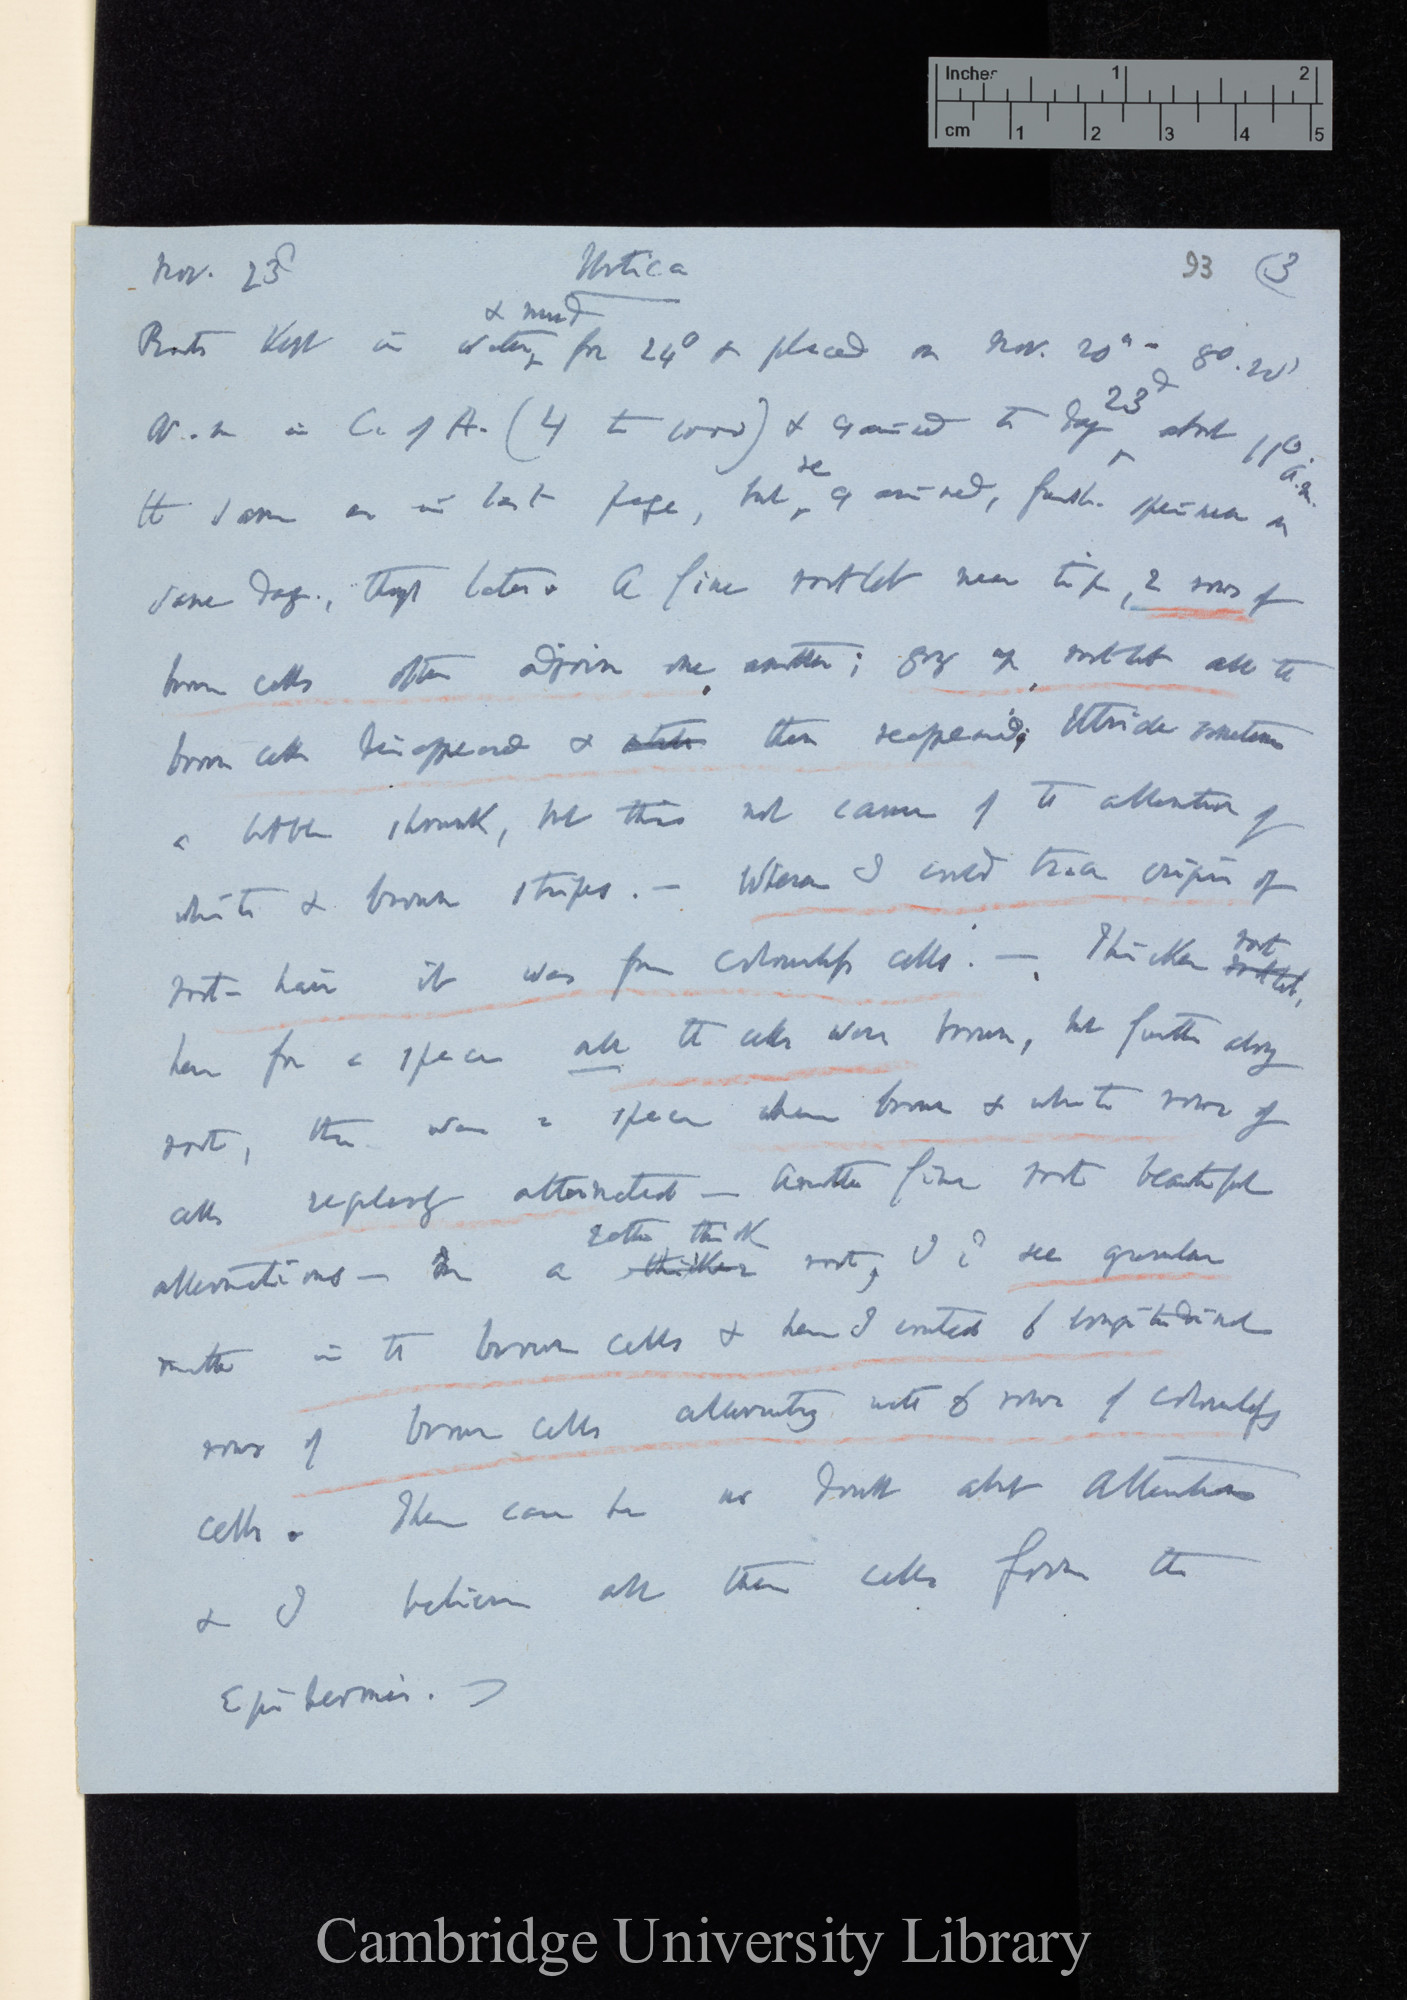 Inches 1 2
cm 1 2 3 4 5
Nov. 23d Urtica 93 (3
& mud
Roots kept in water, for 24° & placed on Nov. 20th - 8°. 20'
A.m in C. of A. (4 to 1000) & examined to day 23d about 11° a.m.
the same as in last page, but re examined, fresh specimen on
same day, though later. A fine rootlet near tip, 2 rows of
brown cells often adjoin one another; going up rootlet all the
brown cells disappeared & then reappeared; Utricle sometimes
a little shrunk, but this not cause of the alternation of
white & brown stripes. — Where I could trace origin of
root-hair it was from colourless cells. — Thicker root rootlet,
here for a space all the cells were brown, but further along
root, there was a space where brown & white rows of
cells regularly alternated — Another fine root beautiful
rather thick
alternations — In a thicker root, I cd see granular
matter in the brown cells & here I counted 6 longitudinal
rows of brown cells alternating with 6 rows of colourless
cells. There can be no doubt about alternations
& I believe all these cells form the
Epidermis.
Cambridge University Library